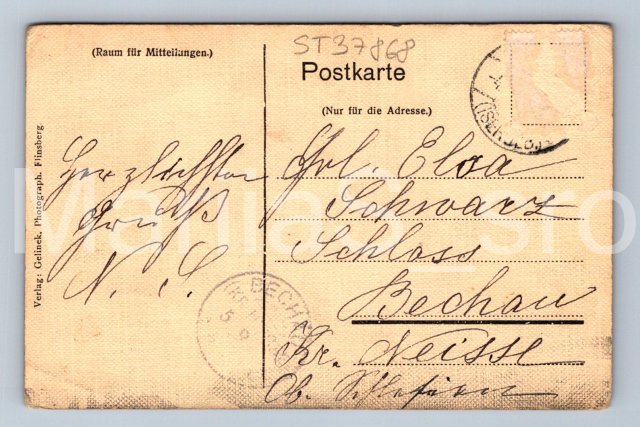 ST37868
(Raum für Mitteilungen.)
Postkarte
(Nur für die Adresse.)
Herzlichsten
Gruß
N. S.
Frl. Elsa
Schwarz
Schloss
Bechau
Kr. Neisse
Ob. Schlesien
Verlag: Gelinek, Photograph. Flinsberg
BECHAU